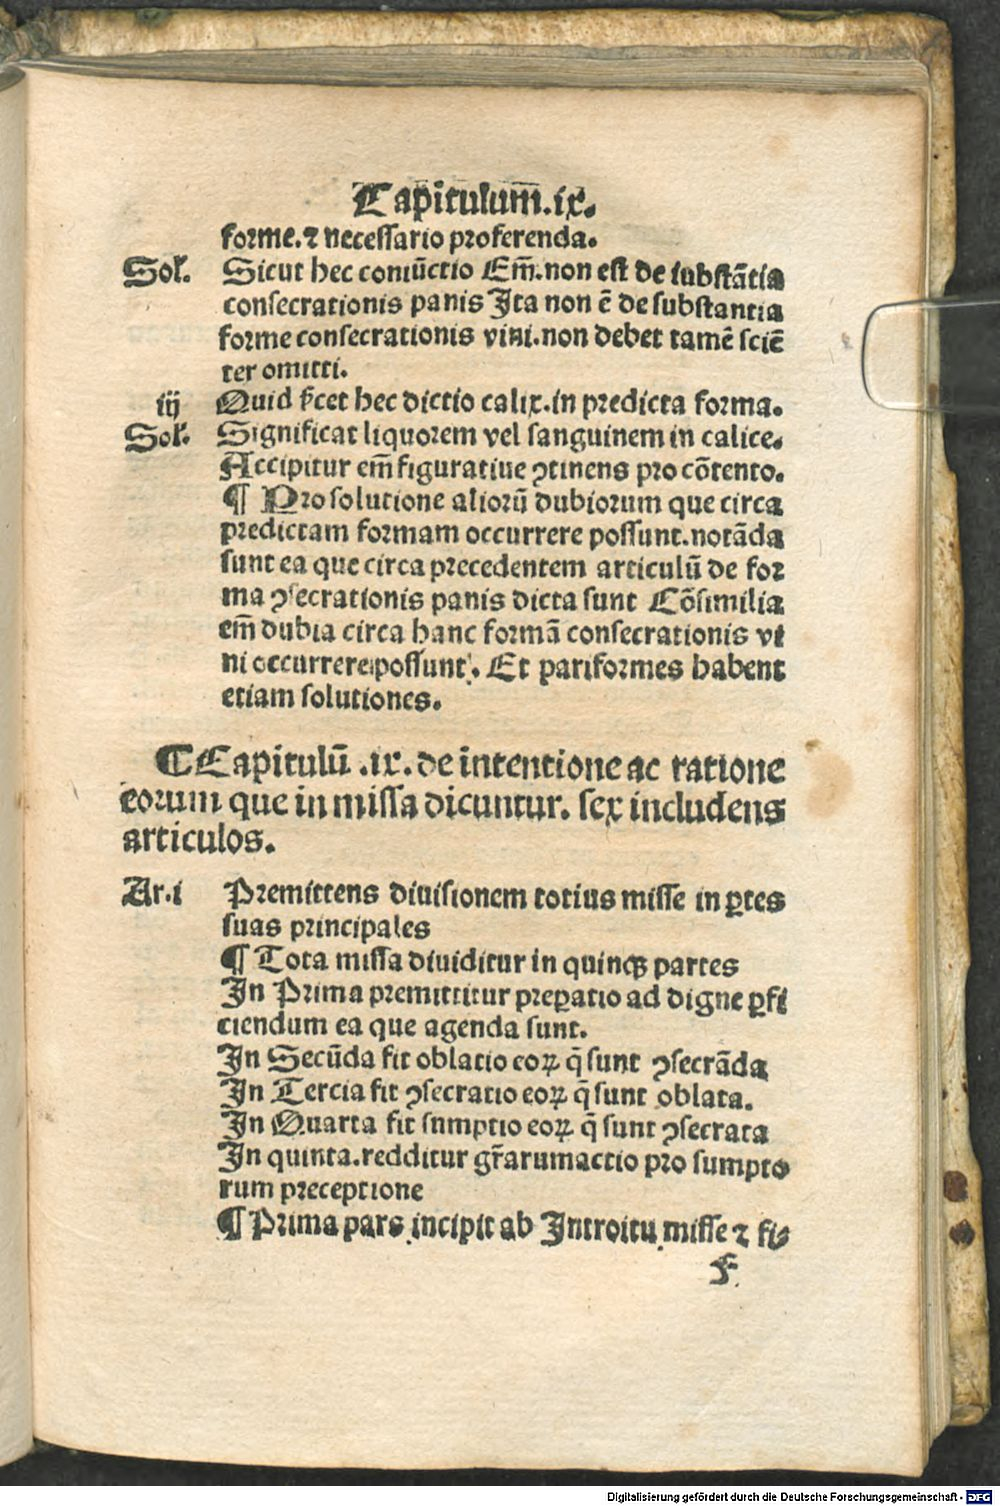 Capitulum̄.ix.
forme.⁊ necessario proferenda.
Sol'. Sicut hec coniūctio Em̄.non est de substātia
consecrationis panis Ita non ē de substantia
forme consecrationis vini.non debet tamē sciē
ter omitti.
iij Quid p̄cet hec dictio calix.in predicta forma.
Sol'. Significat liquorem vel sanguinem in calice.
Accipitur em̄ figuratiue ꝯtinens pro cōtento.
¶ Pro solutione aliorū dubiorum que circa
predictam formam occurrere possunt.notāda
sunt ea que circa precedentem articulū de for
ma ꝯsecrationis panis dicta sunt Cōsimilia
em̄ dubia circa hanc formā consecrationis vi
ni occurrere possunt. Et pariformes habent
etiam solutiones.
¶Capitulū .ix. de intentione ac ratione
eorum que in missa dicuntur. sex includens
articulos.
Ar.i Premittens diuisionem totius misse in ꝑtes
suas principales
¶ Tota missa diuiditur in quinqꝫ partes
In Prima premittitur preꝑatio ad digne ꝑfi
ciendum ea que agenda sunt.
In Secūda fit oblatio eoꝝ q̄ sunt ꝯsecrāda
In Tercia fit ꝯsecratio eoꝝ q̄ sunt oblata.
In Quarta fit snmptio eoꝝ q̄ sunt ꝯsecrata
In quinta.redditur gr̄arumactio pro sumpto
rum preceptione
¶ Prima pars incipit ab Introitu misse ⁊ fi⸗
F
Digitalisierung gefördert durch die Deutsche Forschungsgemeinschaft - DFG